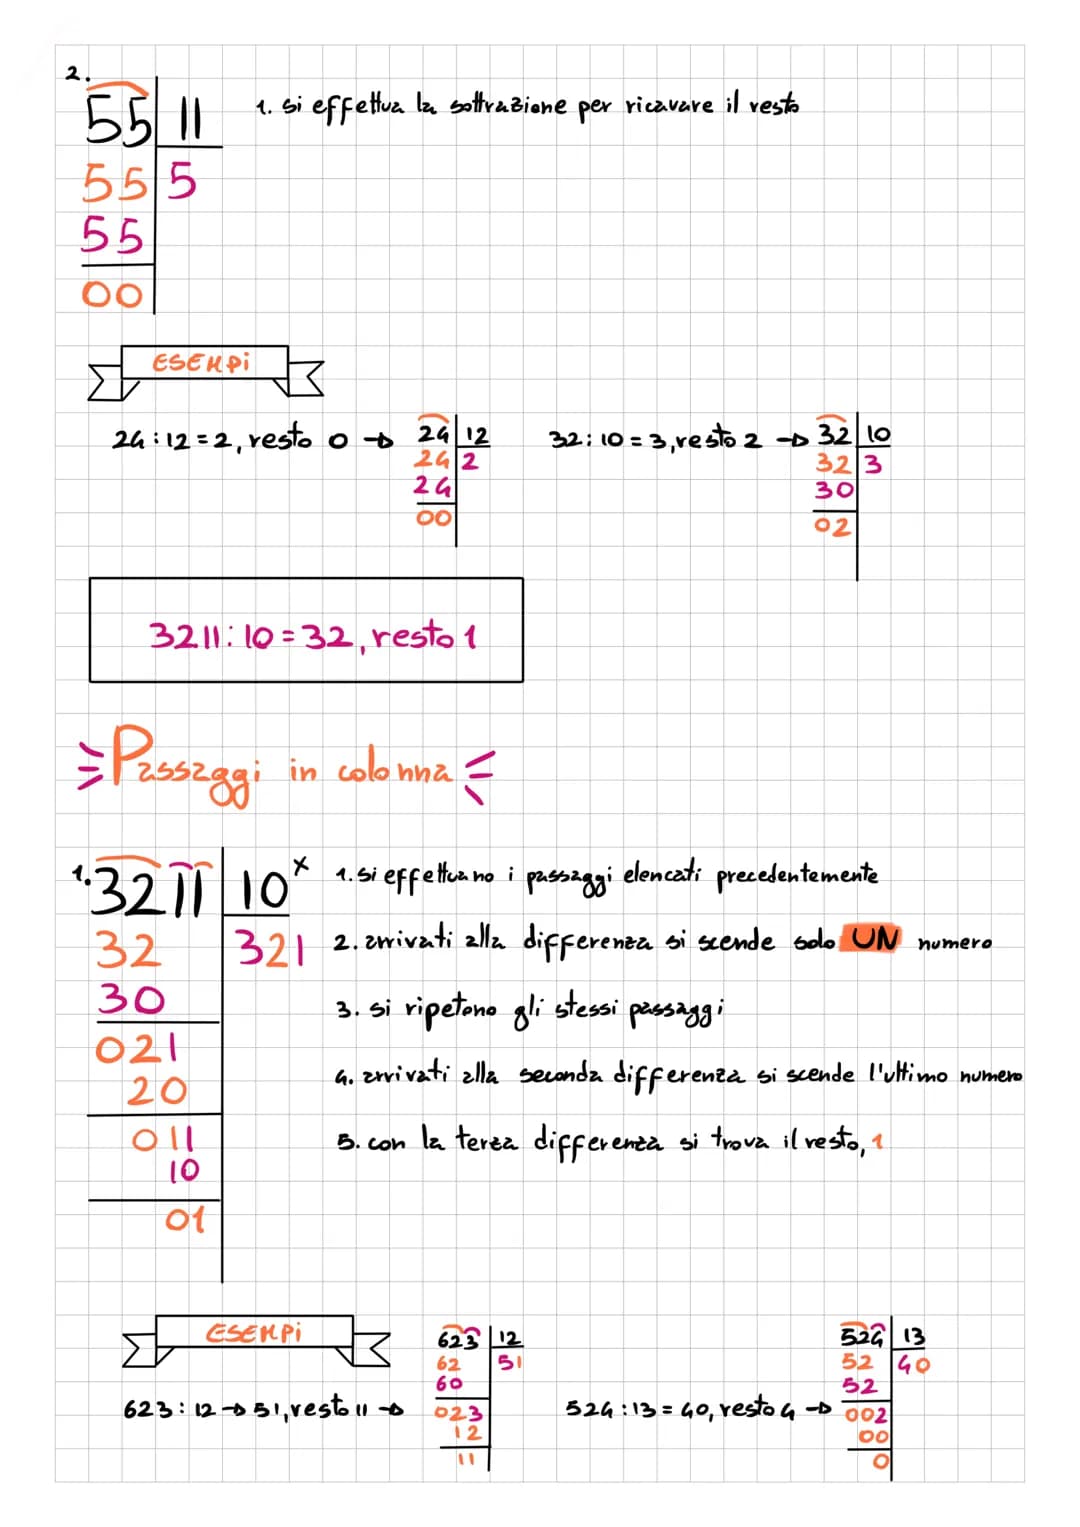 2.
55 11
1. si effettua la sottrazione per ricavare il resto
55 5
55
00
ESEMPi
24 : 12 = 2, resto 0 → 24 12
24 2
24
00
32 : 10 = 3, resto 2 → 32 10
32 3
30
02
3211 : 10 = 32, resto 1
Passaggi in colonna
1. 3211 10 x
32 321
30
021
20
011
10
01
1. si effettuano i passaggi elencati precedentemente
2. arrivati alla differenza si scende solo UN numero
3. si ripetono gli stessi passaggi
4. arrivati alla seconda differenza si scende l'ultimo numero
5. con la terza differenza si trova il resto, 1
ESEMPi
623 : 12 → 51, resto 11 →
623 12
62 51
60
023
12
11
524 : 13 = 40, resto 4 →
524 13
52 40
52
002
00
0